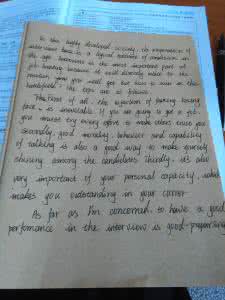 In the highly developed society, the importance of
interview basic is a logical outcome of competition in
the age. Interview is the most important part of
job hunting because it will directly relate to the
position you will get but how to win in this
battlefield. the tips are as follows.
First of all, the
face, is inevitable. If you are going to get a job.
you must try every effort to make others enjoy you
secondly, good morality, behavior and capability
of talking is also a good way to make yourself
shining among the candidates. Thirdly, it's also
very important of your personal capacity, which
makes you outstanding in your carrer
As far as I'm concerned, to have a good
perfomance in the interview is good-preparation